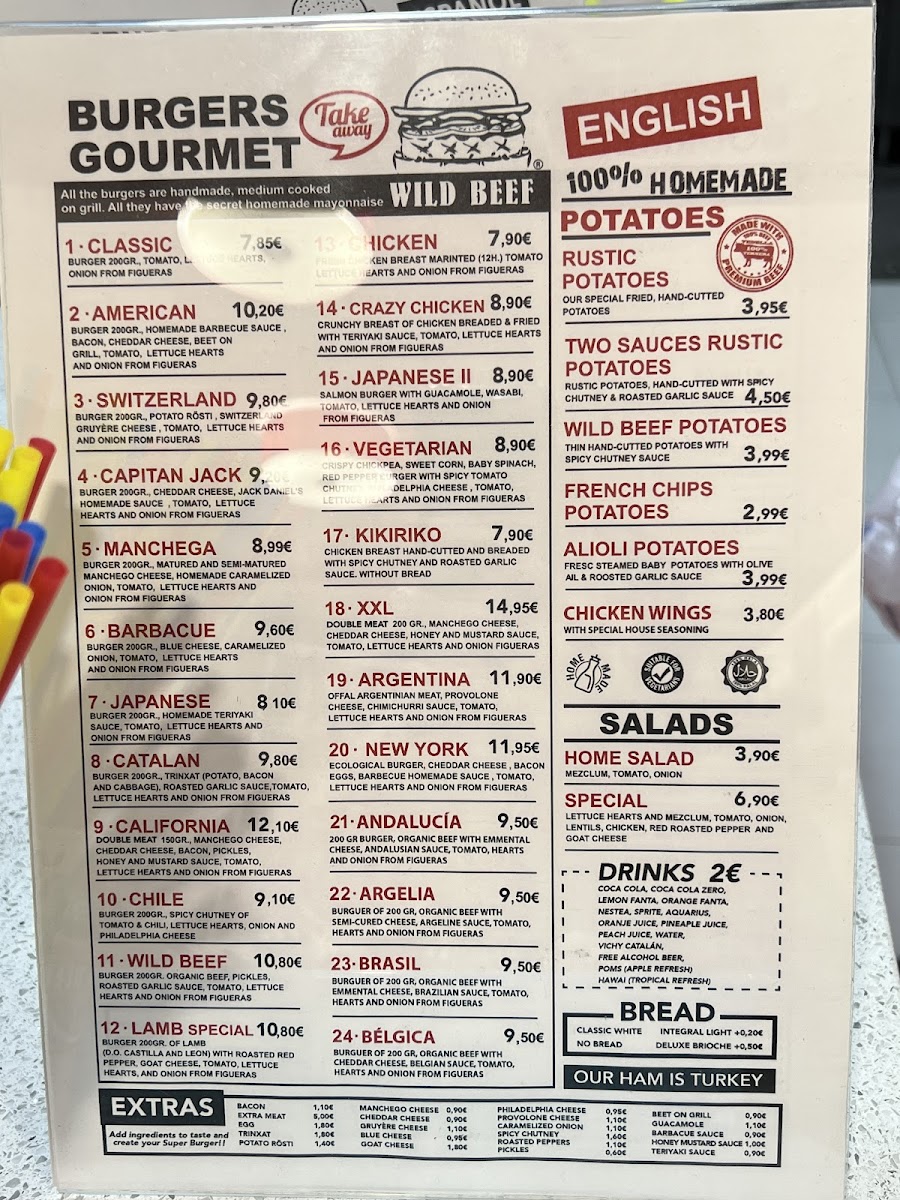 BURGERS
GOURMET
Take
away
®
All the burgers are handmade, medium cooked
on grill. All they have secret homemade mayonnaise
WILD BEEF
1 · CLASSIC 7,85€
BURGER 200GR., TOMATO, HEARTS,
ONION FROM FIGUERAS
2 · AMERICAN 10,20€
BURGER 200GR., HOMEMADE BARBECUE SAUCE ,
BACON, CHEDDAR CHEESE, BEET ON
GRILL, TOMATO, LETTUCE HEARTS
AND ONION FROM FIGUERAS
3 · SWITZERLAND 9,80€
BURGER 200GR., POTATO RÖSTI , SWITZERLAND
GRUYÈRE CHEESE , TOMATO, LETTUCE HEARTS
AND ONION FROM FIGUERAS
4 · CAPITAN JACK
BURGER 200GR., CHEDDAR CHEESE, JACK DANIEL'S
HOMEMADE SAUCE , TOMATO, LETTUCE
HEARTS AND ONION FROM FIGUERAS
5 · MANCHEGA 8,99€
BURGER 200GR., MATURED AND SEMI-MATURED
MANCHEGO CHEESE, HOMEMADE CARAMELIZED
ONION, TOMATO, LETTUCE HEARTS AND
ONION FROM FIGUERAS
6 · BARBACUE 9,60€
BURGER 200GR., BLUE CHEESE, CARAMELIZED
ONION, TOMATO, LETTUCE HEARTS
AND ONION FROM FIGUERAS
7 · JAPANESE 8 10€
BURGER 200GR., HOMEMADE TERIYAKI
SAUCE, TOMATO, LETTUCE HEARTS AND
ONION FROM FIGUERAS
8 · CATALAN 9,80€
BURGER 200GR., TRINXAT (POTATO, BACON
AND CABBAGE), ROASTED GARLIC SAUCE,TOMATO,
LETTUCE HEARTS AND ONION FROM FIGUERAS
9 · CALIFORNIA 12,10€
DOUBLE MEAT 150GR., MANCHEGO CHEESE,
CHEDDAR CHEESE, BACON, PICKLES,
HONEY AND MUSTARD SAUCE, TOMATO,
LETTUCE HEARTS AND ONION FROM FIGUERAS
10 · CHILE 9,10€
BURGER 200GR., SPICY CHUTNEY OF
TOMATO & CHILI, LETTUCE HEARTS, ONION AND
PHILADELPHIA CHEESE
11 · WILD BEEF 10,80€
BURGER 200GR. ORGANIC BEEF, PICKLES,
ROASTED GARLIC SAUCE, TOMATO, LETTUCE
HEARTS AND ONION FROM FIGUERAS
12 · LAMB SPECIAL 10,80€
BURGER 200GR. OF LAMB
(D.O. CASTILLA AND LEON) WITH ROASTED RED
PEPPER, GOAT CHEESE, TOMATO, LETTUCE
HEARTS, AND ONION FROM FIGUERAS
13 · CHICKEN 7,90€
CHICKEN BREAST MARINTED (12H.) TOMATO
LETTUCE HEARTS AND ONION FROM FIGUERAS
14 · CRAZY CHICKEN 8,90€
CRUNCHY BREAST OF CHICKEN BREADED & FRIED
WITH TERIYAKI SAUCE, TOMATO, LETTUCE HEARTS
AND ONION FROM FIGUERAS
15 · JAPANESE II 8,90€
SALMON BURGER WITH GUACAMOLE, WASABI,
TOMATO, LETTUCE HEARTS AND ONION
FROM FIGUERAS
16 · VEGETARIAN 8,90€
CRISPY CHICKPEA, SWEET CORN, BABY SPINACH,
RED PEPPER BURGER WITH SPICY TOMATO
CHUTNEY, PHILADELPHIA CHEESE , TOMATO,
LETTUCE HEARTS AND ONION FROM FIGUERAS
17 · KIKIRIKO 7,90€
CHICKEN BREAST HAND-CUTTED AND BREADED
WITH SPICY CHUTNEY AND ROASTED GARLIC
SAUCE. WITHOUT BREAD
18 · XXL 14,95€
DOUBLE MEAT 200 GR., MANCHEGO CHEESE,
CHEDDAR CHEESE, HONEY AND MUSTARD SAUCE,
TOMATO, LETTUCE HEARTS AND ONION FROM FIGUERAS
19 · ARGENTINA 11,90€
OFFAL ARGENTINIAN MEAT, PROVOLONE
CHEESE, CHIMICHURRI SAUCE, TOMATO,
LETTUCE HEARTS AND ONION FROM FIGUERAS
20 · NEW YORK 11,95€
ECOLOGICAL BURGER, CHEDDAR CHEESE , BACON
EGGS, BARBECUE HOMEMADE SAUCE , TOMATO,
LETTUCE HEARTS AND ONION FROM FIGUERAS
21 · ANDALUCÍA 9,50€
200 GR BURGER, ORGANIC BEEF WITH EMMENTAL
CHEESE, ANDALUSIAN SAUCE, TOMATO, HEARTS
AND ONION FROM FIGUERAS
22 · ARGELIA 9,50€
BURGUER OF 200 GR, ORGANIC BEEF WITH
SEMI-CURED CHEESE, ARGELINE SAUCE, TOMATO,
HEARTS AND ONION FROM FIGUERAS
23 · BRASIL 9,50€
BURGUER OF 200 GR, ORGANIC BEEF WITH
EMMENTAL CHEESE, BRAZILIAN SAUCE, TOMATO,
HEARTS AND ONION FROM FIGUERAS
24 · BÉLGICA 9,50€
BURGUER OF 200 GR, ORGANIC BEEF WITH
CHEDDAR CHEESE, BELGIAN SAUCE, TOMATO,
HEARTS AND ONION FROM FIGUERAS
ENGLISH
100% HOMEMADE
POTATOES
MADE WITH
100%
PREMIUM BEEF
RUSTIC
POTATOES
OUR SPECIAL FRIED, HAND-CUTTED
POTATOES 3,95€
TWO SAUCES RUSTIC
POTATOES
RUSTIC POTATOES, HAND-CUTTED WITH SPICY
CHUTNEY & ROASTED GARLIC SAUCE 4,50€
WILD BEEF POTATOES
THIN HAND-CUTTED POTATOES WITH
SPICY CHUTNEY SAUCE 3,99€
FRENCH CHIPS
POTATOES 2,99€
ALIOLI POTATOES
FRESC STEAMED BABY POTATOES WITH OLIVE
AIL & ROOSTED GARLIC SAUCE 3,99€
CHICKEN WINGS 3,80€
WITH SPECIAL HOUSE SEASONING
HOME MADE
SUITABLE FOR VEGETARIANS
حلال
SALADS
HOME SALAD 3,90€
MEZCLUM, TOMATO, ONION
SPECIAL 6,90€
LETTUCE HEARTS AND MEZCLUM, TOMATO, ONION,
LENTILS, CHICKEN, RED ROASTED PEPPER AND
GOAT CHEESE
DRINKS 2€
COCA COLA, COCA COLA ZERO,
LEMON FANTA, ORANGE FANTA,
NESTEA, SPRITE, AQUARIUS,
ORANJE JUICE, PINEAPLE JUICE,
PEACH JUICE, WATER,
VICHY CATALÁN,
FREE ALCOHOL BEER,
POMS (APPLE REFRESH)
HAWAI (TROPICAL REFRESH)
BREAD
CLASSIC WHITE INTEGRAL LIGHT +0,20€
NO BREAD DELUXE BRIOCHE +0,50€
OUR HAM IS TURKEY
EXTRAS
Add ingredients to taste and
create your Super Burger!!
BACON 1,10€
EXTRA MEAT 5,00€
EGG 1,80€
TRINXAT 1,80€
POTATO RÖSTI 1,40€
MANCHEGO CHEESE 0,90€
CHEDDAR CHEESE 0,90€
GRUYÈRE CHEESE 1,10€
BLUE CHEESE 0,95€
GOAT CHEESE 1,80€
PHILADELPHIA CHEESE 0,95€
PROVOLONE CHEESE 1,10€
CARAMELIZED ONION 1,10€
SPICY CHUTNEY 1,60€
ROASTED PEPPERS 1,10€
PICKLES 0,60€
BEET ON GRILL 0,90€
GUACAMOLE 1,10€
BARBACUE SAUCE 0,90€
HONEY MUSTARD SAUCE 1,00€
TERIYAKI SAUCE 0,90€